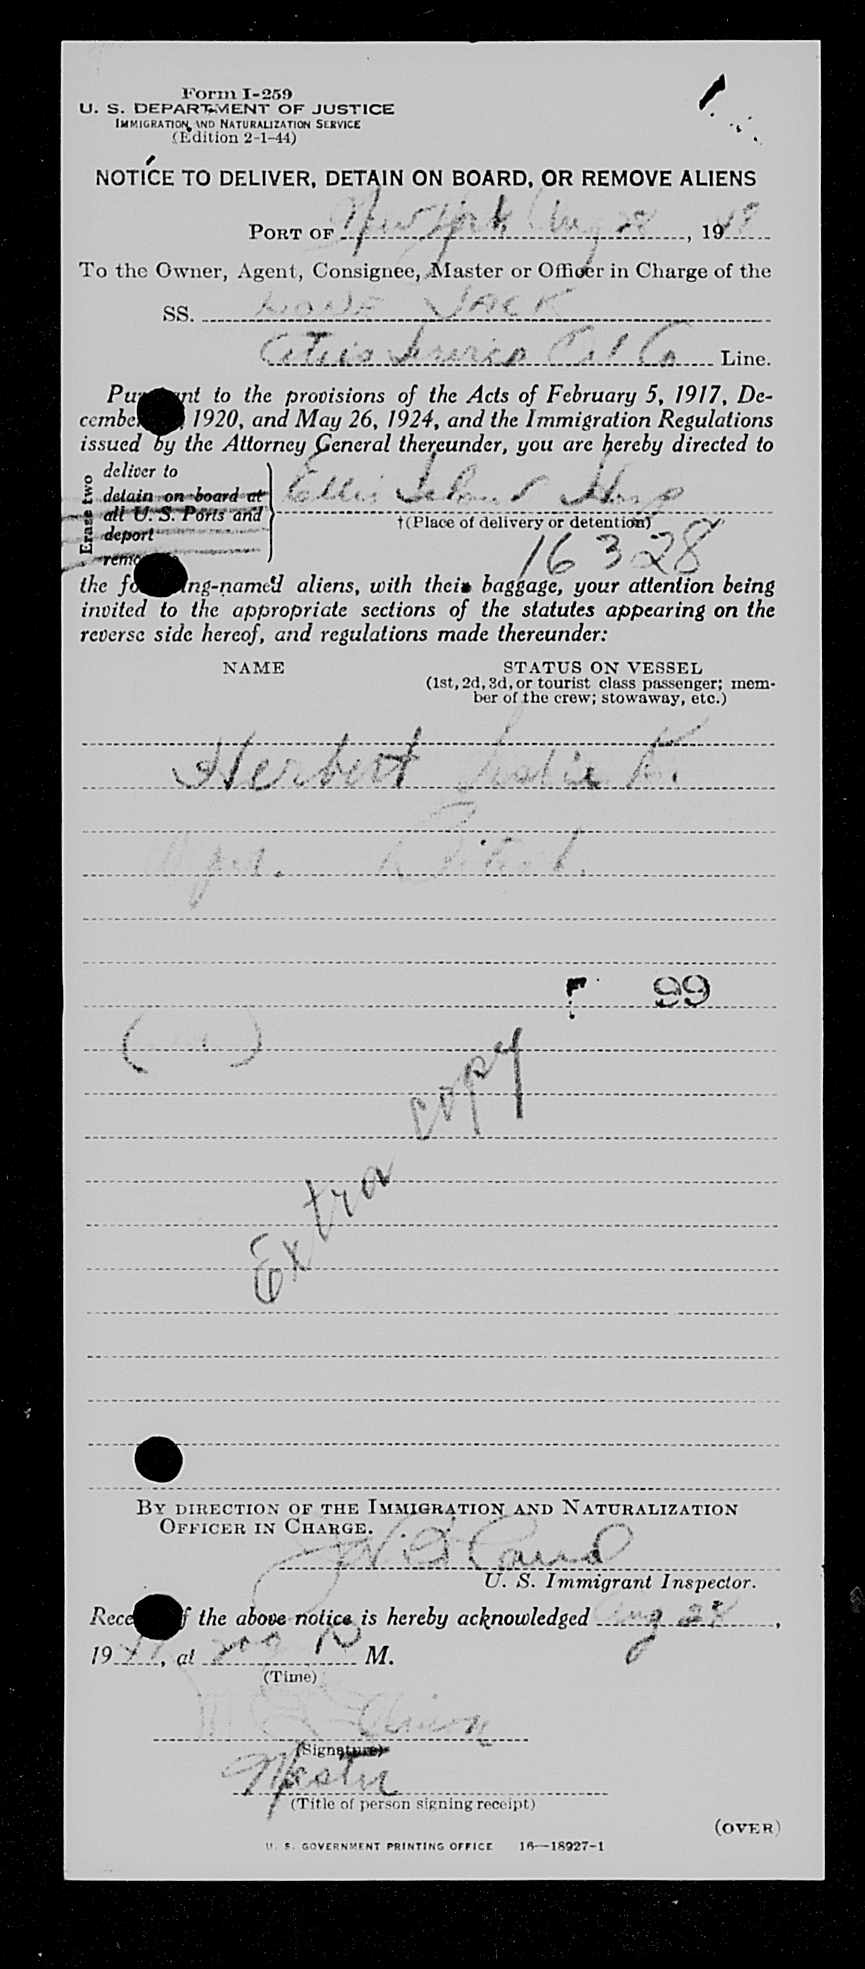 Form I-259
U. S. DEPARTMENT OF JUSTICE
IMMIGRATION AND NATURALIZATION SERVICE
(Edition 2-1-44)
NOTICE TO DELIVER, DETAIN ON BOARD, OR REMOVE ALIENS
PORT OF New York Aug 28, 19
To the Owner, Agent, Consignee, Master or Officer in Charge of the
SS. JACK
Cities Service Oil Co Line.
Pu nt to the provisions of the Acts of February 5, 1917, De-
cembe 1920, and May 26, 1924, and the Immigration Regulations
issued by the Attorney General thereunder, you are hereby directed to
Erase two
deliver to
detain on board at
all U. S. Ports and
deport
remo
Ellis Island Hosp
†(Place of delivery or detention)
16328
the fo ng-named aliens, with their baggage, your attention being
invited to the appropriate sections of the statutes appearing on the
reverse side hereof, and regulations made thereunder:
NAME STATUS ON VESSEL
(1st, 2d, 3d, or tourist class passenger; mem-
ber of the crew; stowaway, etc.)
Herbert Leslie K.
99
Extra copy
BY DIRECTION OF THE IMMIGRATION AND NATURALIZATION
OFFICER IN CHARGE.
U. S. Immigrant Inspector.
Rece f the above notice is hereby acknowledged Aug 28,
19 , at 200 P M.
(Time)
(Signature)
Master
(Title of person signing receipt)
(OVER)
U. S. GOVERNMENT PRINTING OFFICE 16—18927-1